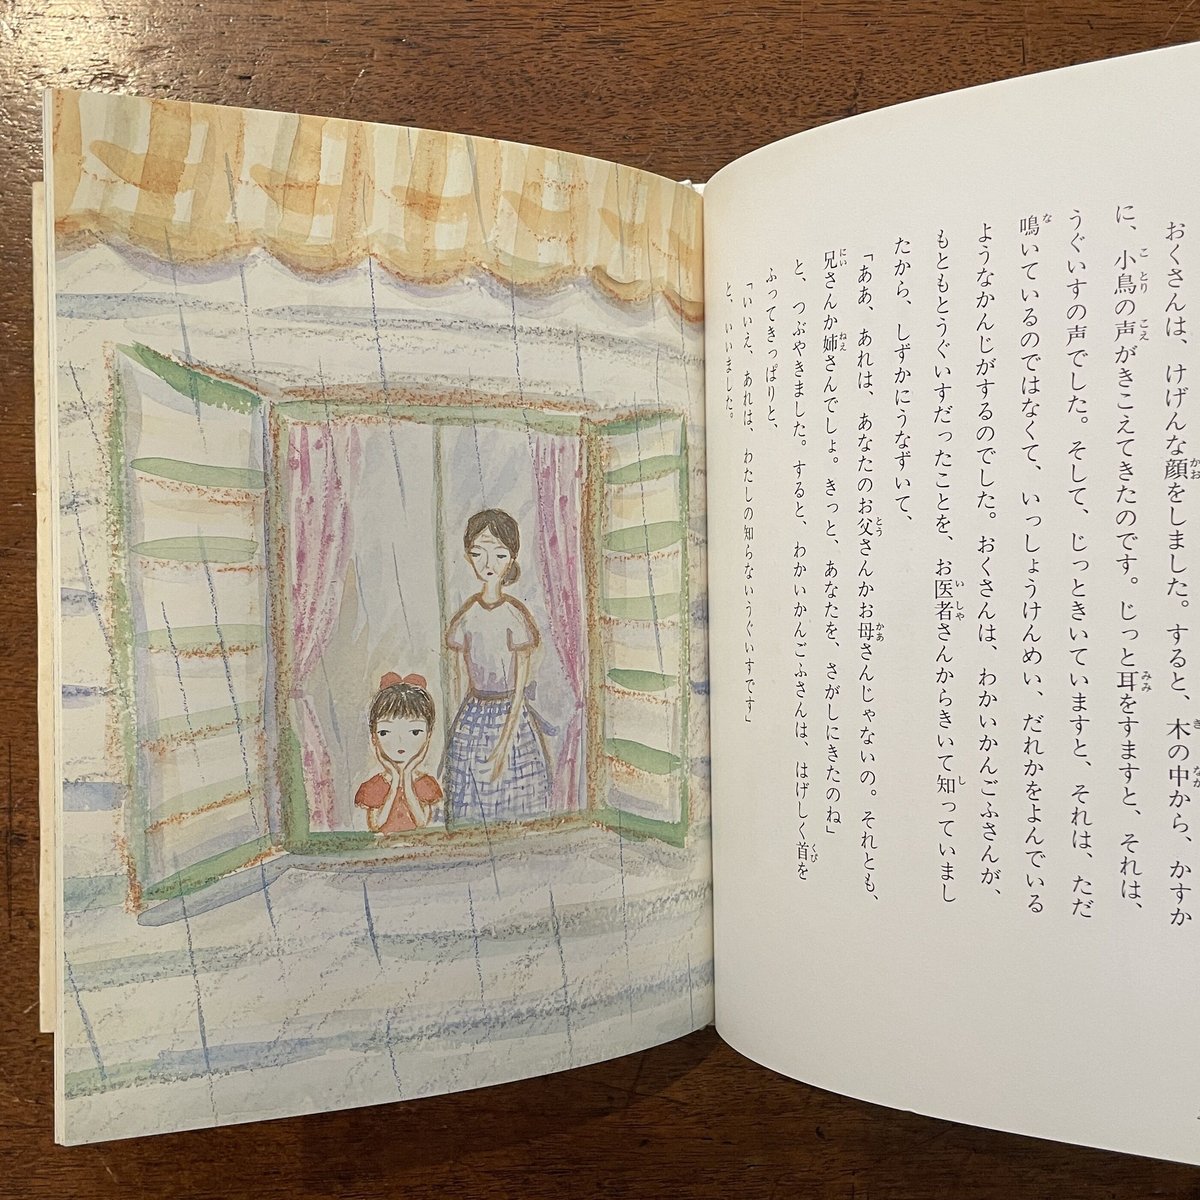 おくさんは、けげんな顔をしました。すると、木の中から、かすか
に、小鳥の声がきこえてきたのです。じっと耳をすますと、それは、
うぐいすの声でした。そして、じっときいていますと、それは、ただ
鳴いているのではなくて、いっしょうけんめい、だれかをよんでいる
ようなかんじがするのでした。おくさんは、わかいかんごふさんが、
もともとうぐいすだったことを、お医者さんからきいて知っていまし
たから、しずかにうなずいて、
「ああ、あれは、あなたのお父さんかお母さんじゃないの。それとも、
兄さんか姉さんでしょ。きっと、あなたを、さがしにきたのね」
と、つぶやきました。すると、わかいかんごふさんは、はげしく首を
ふってきっぱりと、
「いいえ、あれは、わたしの知らないうぐいすです」
と、いいました。